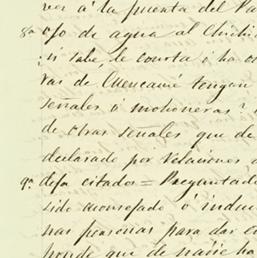 ver á la puenta del Pa
8ª ojo de agua al Chichi
si sabe le consta ó ha o
ras de Cuencamé tengan
señales ó mohoneras?
de otras señales que de
declarado por relaciones
9ª defa citados = Preguntado
sido aconsejado ó induc
nas personas para dar co
ponde que de nadie ha